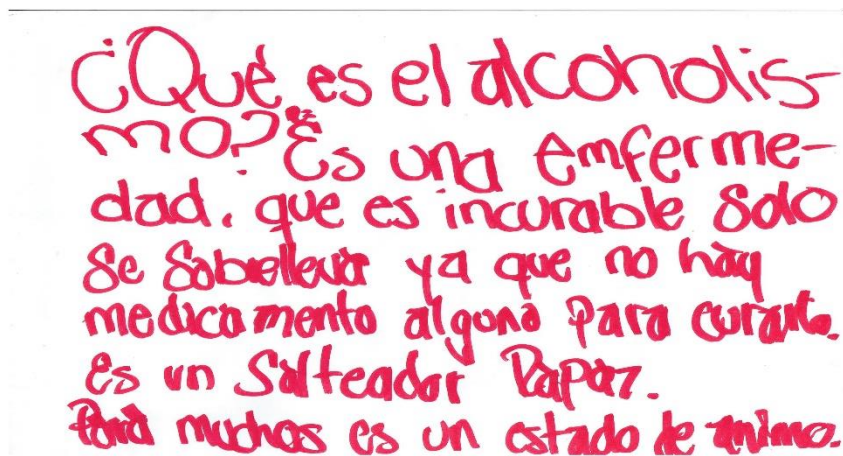 ¿Qué es el alcoholis-
mo? Es una emferme-
dad. que es incurable solo
se sobrellevar ya que no hay
medicamento alguno para curarlo.
es un Salteador Rapaz.
Para muchos es un estado de animo.